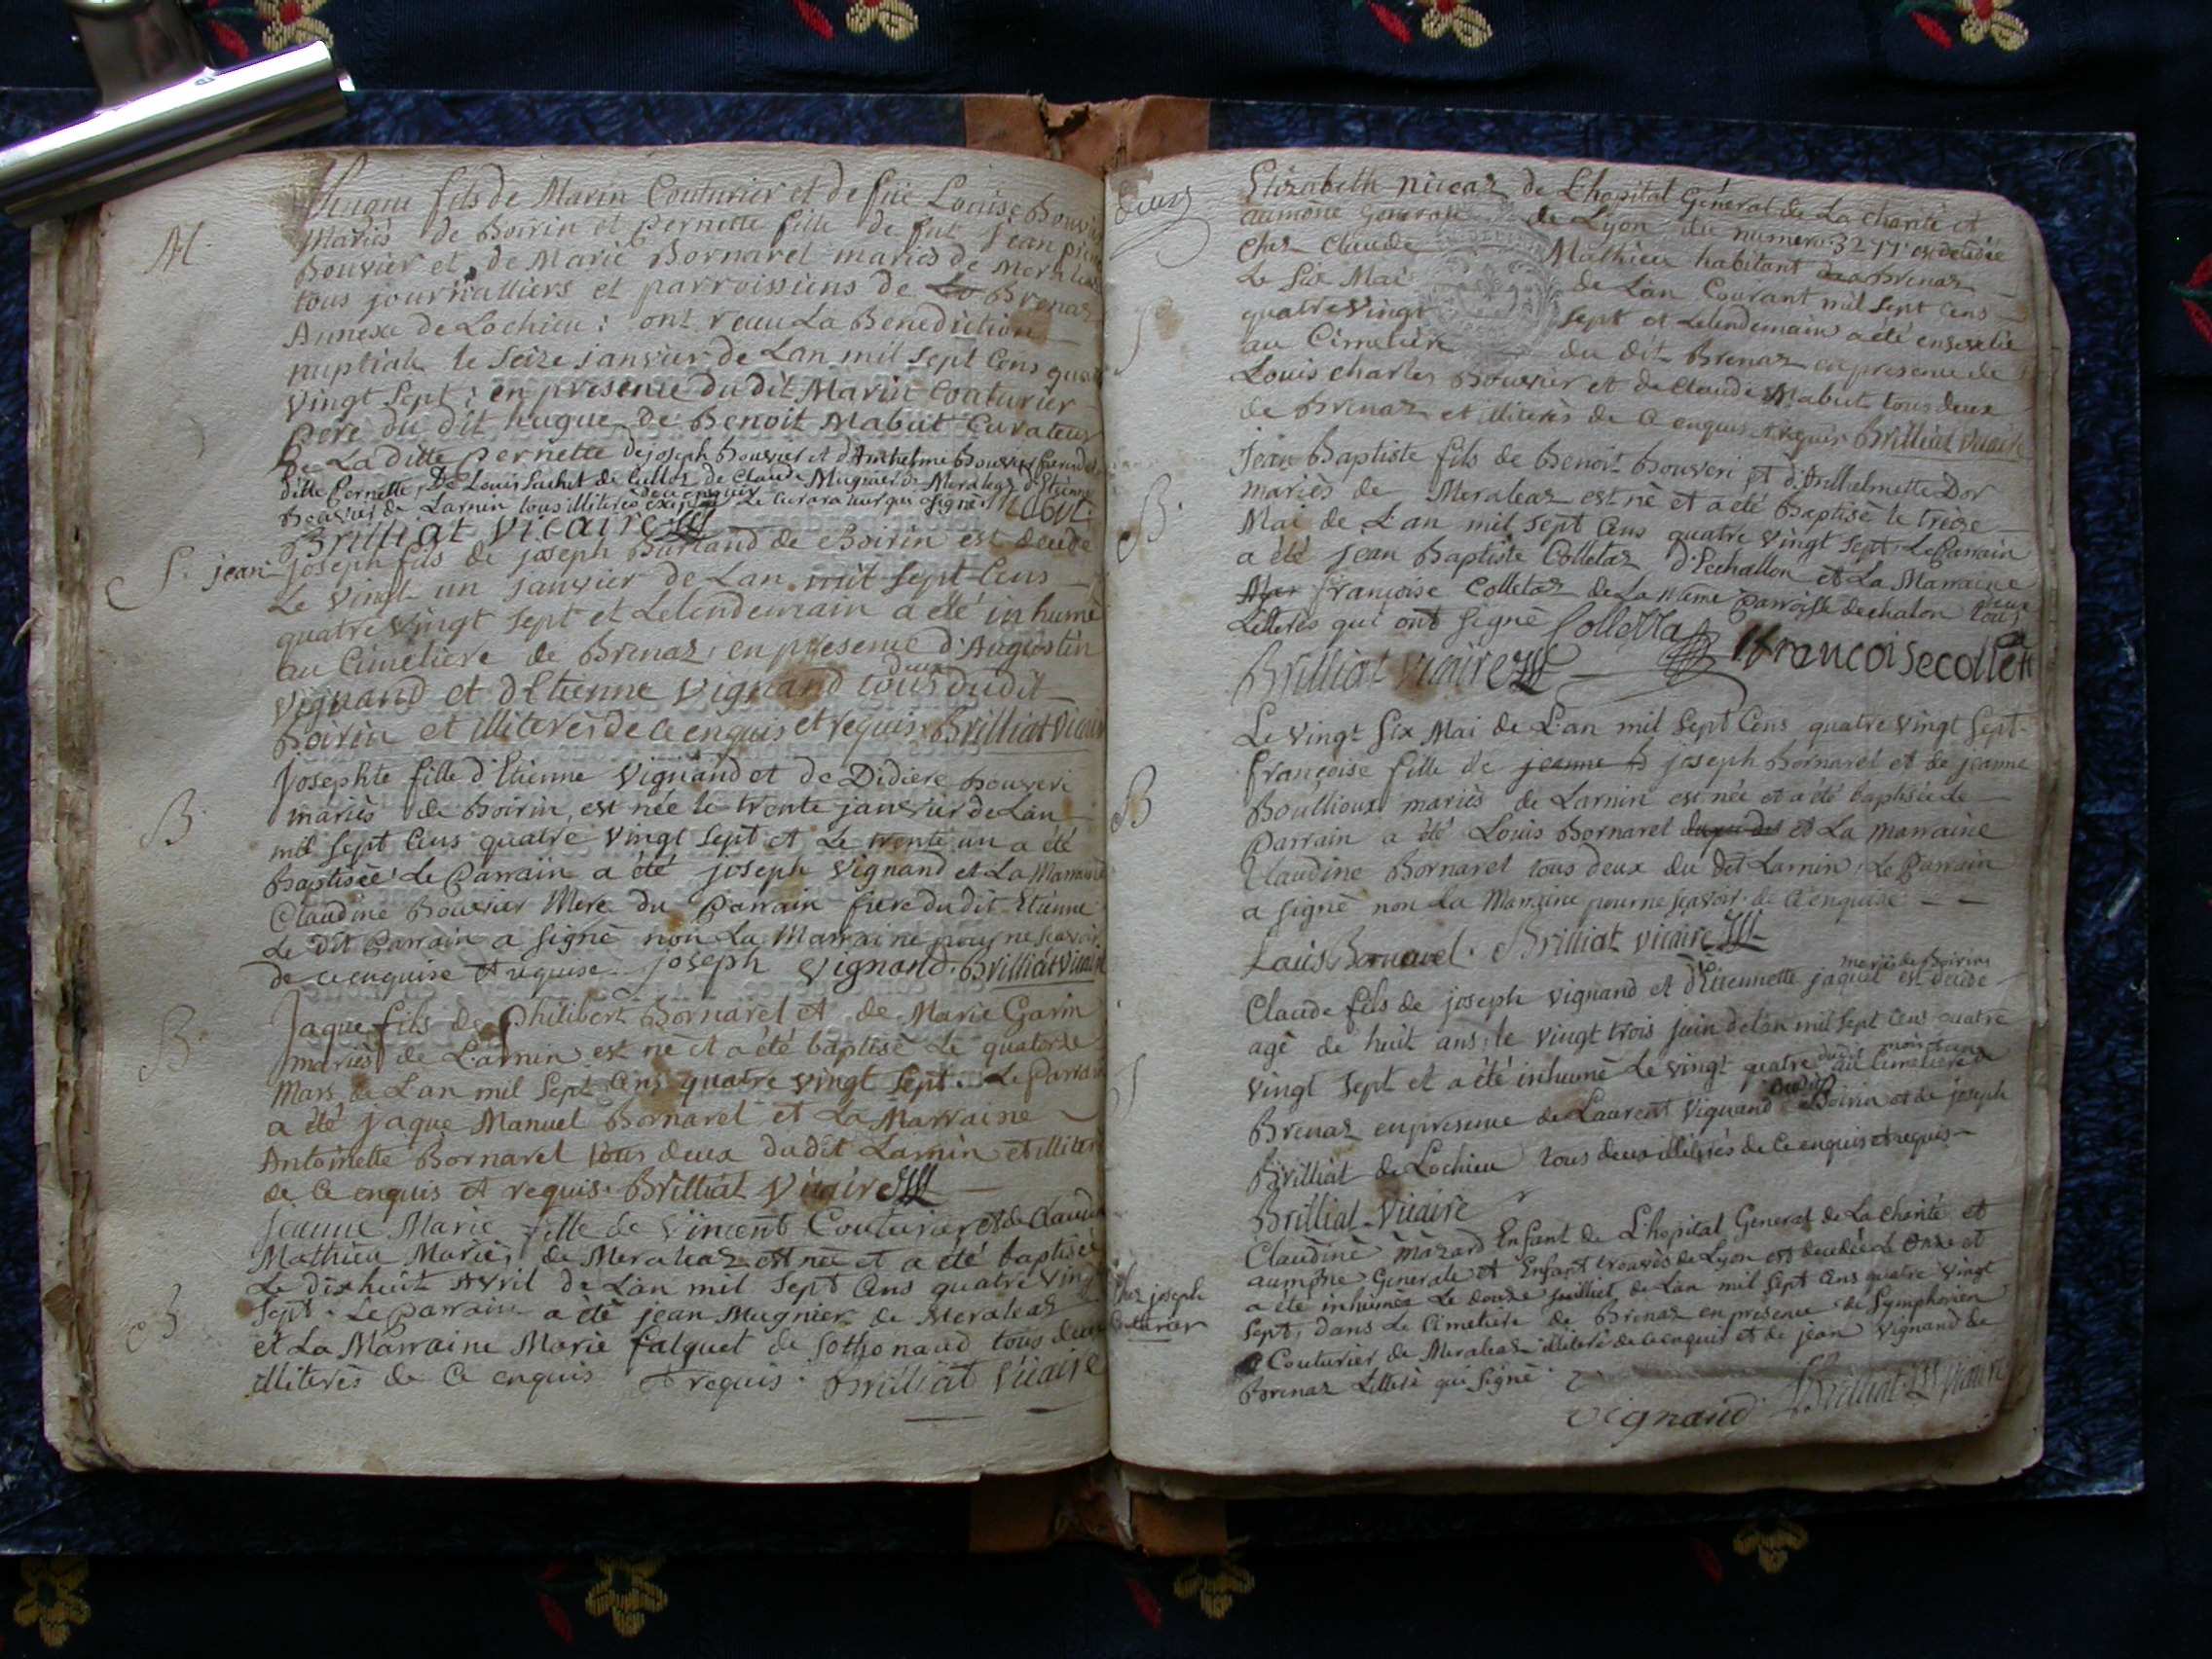 M.
hugue fils de Marin Couturier et de fue Louise Bouvier
Mariés de Boirin et Pernette fille de fut jean pierre
Bouvier et de Marie Bornarel mariés de Meraleaz
tous journalliers et parroissiens de Lo Brenaz
Annexe de Lochieu : ont recu La Benediction
nuptiale le Seize janvier de Lan mil Sept Cens quatre
Vingt Sept ; en presence du dit Marin Couturier
pere du dit hugue de Benoit Mabut Curateur
De La ditte Pernette de joseph Bouvier et d'Anthelme Bouvier
ditte Pernette, De Louis Lachat de Culloz de Claude Mugnier de Meraleaz d'Etienne
Bouvier de Larnin tous illiterés de ce enquis excepté Le Curateur qui a signé Mabut
Brilliat Vicaire
S. jean joseph fils de joseph Burland de Boirin est decede
Le Vingt un janvier de Lan mil Sept Cens
quatre Vingt Sept et Lelendemain a été inhumé
au Cimetiere de Brenaz, en presence d'Augustin
Vignand et d'Etienne Vignand tous deux dudit
Boirin et illiterés de ce enquis et requis Brilliat Vicaire
B.
Josephte fille d'Etienne Vignand et de Didiere Bouveri
mariés de Boirin, est née le trente janvier de Lan
mil Sept Cens quatre Vingt Sept et Le trente un a été
Baptisée Le Parrain a été joseph Vignand et La Marraine
Claudine Bouvier Mere du Parrain frere du dit Etienne
Le dit Parrain a signé non La Marraine pour ne scavoir
de ce enquise et requise. joseph vignand. Brilliat Vicaire
B.
Jaque fils de Philibert Bornarel et de Marie Garin
mariés de Larnin est né et a été baptisé Le quatorze
Mars de Lan mil Sept Cens quatre vingt Sept. Le Parrain
a été jaque Manuel Bornarel et La Marraine
Antoinette Bornarel tous deux du dit Larnin et illiterés
de Ce enquis et requis. Brilliat Vicaire
B
Jeanne Marie fille de Vincent Couturier et de Claudine
Mathieu Mariés de Meraleaz est née et a été baptisée
Le dixhuit Avril de Lan mil Sept Cens quatre Vingt
Sept. Le Parrain a été jean Mugnier de Meraleaz
et La Marraine Marie falquet de Sothonaud tous deux
illiterés de Ce enquis et requis. Brilliat Vicaire
deux
S
Elizabeth nicoaz de L'hopital Général de La charité et
aumône Generale de Lyon du numero 3277 est decedée
chez Claude Mathieu habitant de Brenaz
Le Six Mai de L'an Courant mil Sept Cens
quatre Vingt Sept et Lelendemain a été ensevelie
au Cimetière du dit Brenaz en presence de
Louis charles Bouvier et de Claude Mabut tous deux
de Brenaz et illiterés de Ce enquis et requis Brilliat Vicaire
B.
Jean Baptiste fils de Benoit Bouveri et d'Anthelmette Dor
mariés de Meraleaz est né et a été Baptisé le treize
Mai de L'an mil Sept Cens quatre Vingt Sept. Le Parrain
a été jean Baptiste Colletaz d'Echallon et La Marraine
Mar françoise Colletaz de La même Parroisse dechalon tous deux
Litterés qui ont signé Colletta francoise collet
Brilliat vicaire
B
Le Vingt Six Mai de L'an mil Sept Cens quatre Vingt Sept
françoise fille de jeanne B joseph Bornarel et de jeanne
Boullioux mariés de Larnin est née et a été baptisée Le
Parrain a été Louis Bornarel et La marraine
Claudine Bornarel tous deux du dit Larnin. Le Parrain
a signé non La Marraine pour ne scavoir de Ce enquise
Louis Bornarel. Brilliat vicaire
S
Claude fils de joseph vignand et d'Etiennette jaquet mariés de Boirin est decedé
agé de huit ans, le vingt trois juin de Lan mil Sept Cens quatre
vingt Sept et a été inhumé Le vingt quatre dudit mois au Cimetiere de
Brenaz en presence de Laurent Vignand dudit Boirin et de joseph
Brilliat de Lochieu tous deux illiterés de Ce enquis et requis
Brilliat Vicaire
chez joseph
Couturier
Claudine mazard Enfant de L'hopital General de La Charité et
aumône Generale et Enfant trouvés de Lyon est decedée Le Onze et
a été inhumée Le douze juilliet de Lan mil Sept Cens quatre Vingt
Sept, dans Le Cimetiere de Brenaz en presence de Symphorien
Couturier de Meraleaz illiteré de ce enquis et de jean Vignand de
Brenaz Litteré qui signé.
vignand Brilliat Vicaire